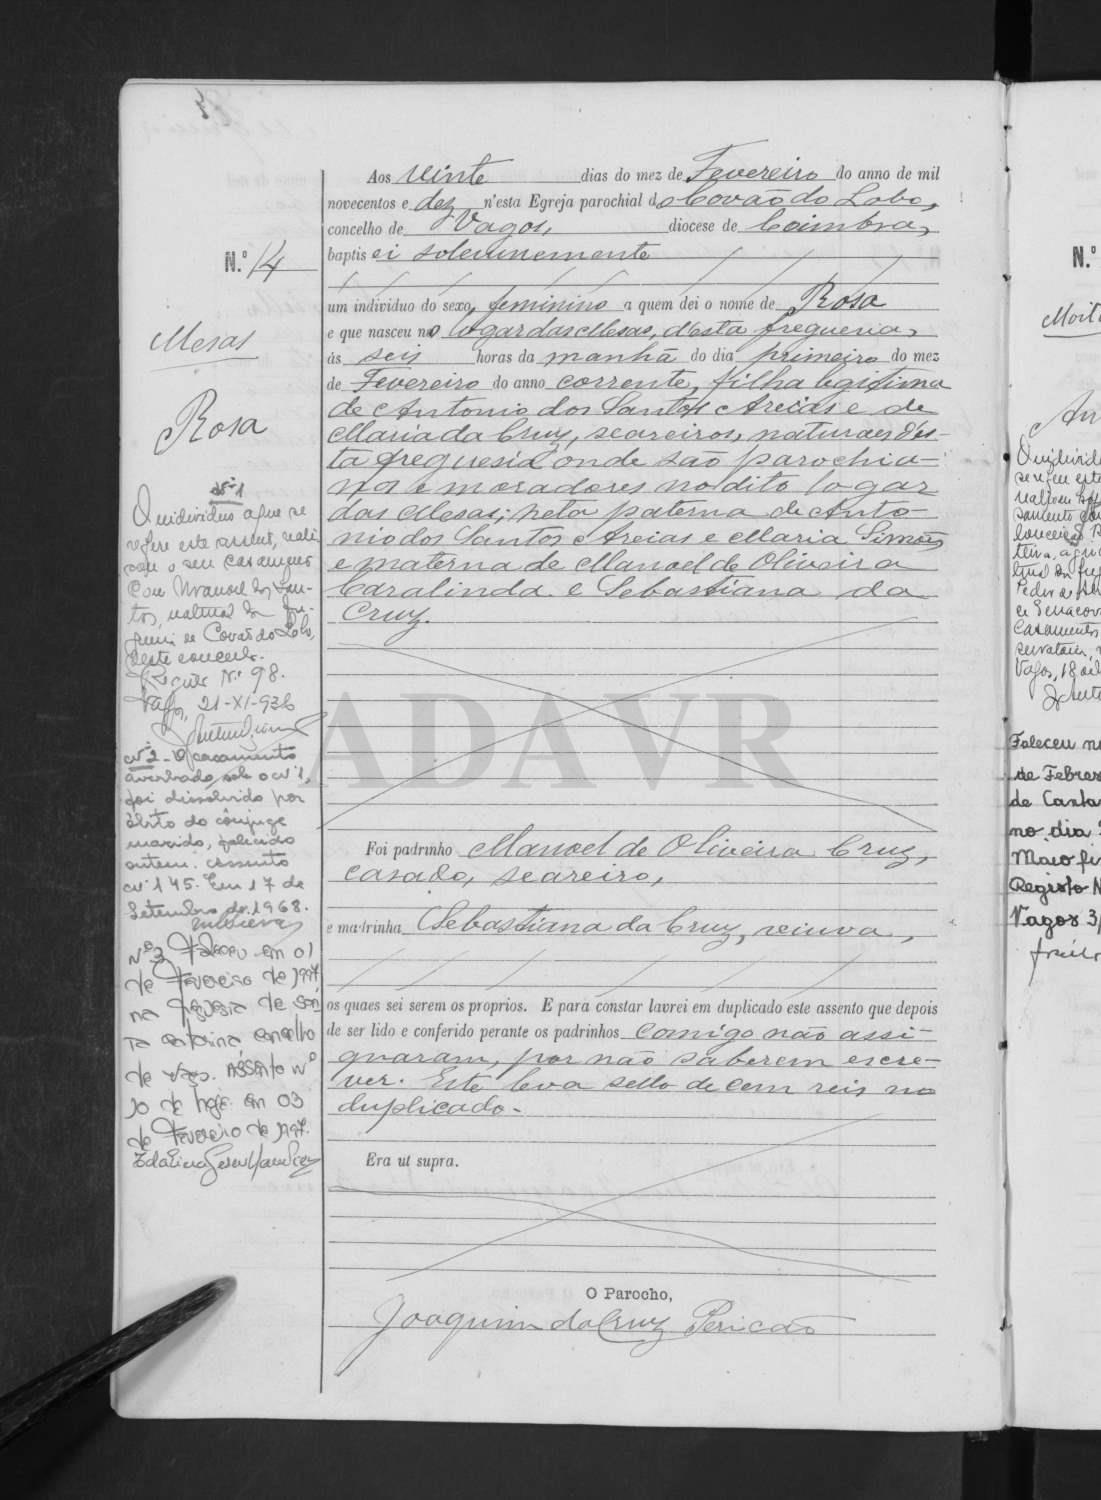 N.º 14
Mesas
Rosa
Nº 1
O individuo a que se
refere este assento, reali
sou o seu casamento
com Manoel dos San-
tos, natural da fre-
guesia de Covão do Lobo,
deste concelho.
Registo Nº 98.
Vagos, 21-XI-936
Nº 2 - O casamento
averbado sob o nº 1,
foi dissolvido por
óbito do cônjuge
marido, falecido
ontem. Assento
nº 145. Em 17 de
Setembro de 1968.
Nº 3 Faleceu em 01
de Fevereiro de 1997
na freguesia de San
ta Catarina concelho
de Vagos. Assento nº
10 de hoje. Em 03
de Fevereiro de 1997.
Aos vinte dias do mez de Fevereiro do anno de mil
novecentos e dez n'esta Egreja parochial de Covão do Lobo,
concelho de Vagos, diocese de Coimbra,
baptisei solemnemente
um individuo do sexo feminino a quem dei o nome de Rosa
e que nasceu no logar das Mesas, d'esta freguesia,
ás seis horas da manhã do dia primeiro do mez
de Fevereiro do anno corrente, filha legitima
de Antonio dos Santos Areias e de
Maria da Cruz, seareiros, naturaes d'es-
ta freguesia onde são parochia-
nos e moradores no dito logar
das Mesas; neta paterna de Anto-
nio dos Santos Areias e Maria Simões
e materna de Manoel de Oliveira
Caralinda e Sebastiana da
Cruz.
ADAVR
Foi padrinho Manoel de Oliveira Cruz,
casado, seareiro,
e madrinha Sebastiana da Cruz, viuva,
os quaes sei serem os proprios. E para constar lavrei em duplicado este assento que depois
de ser lido e conferido perante os padrinhos comigo não assi-
gnaram, por não saberem escre-
ver. Este leva sello de cem reis no
duplicado.
Era ut supra.
O Parocho,
Joaquim da Cruz Pericão
N.º
Faleceu n
de Febre
de Canta
no dia
Maio fi
Registo N
Vagos 3/